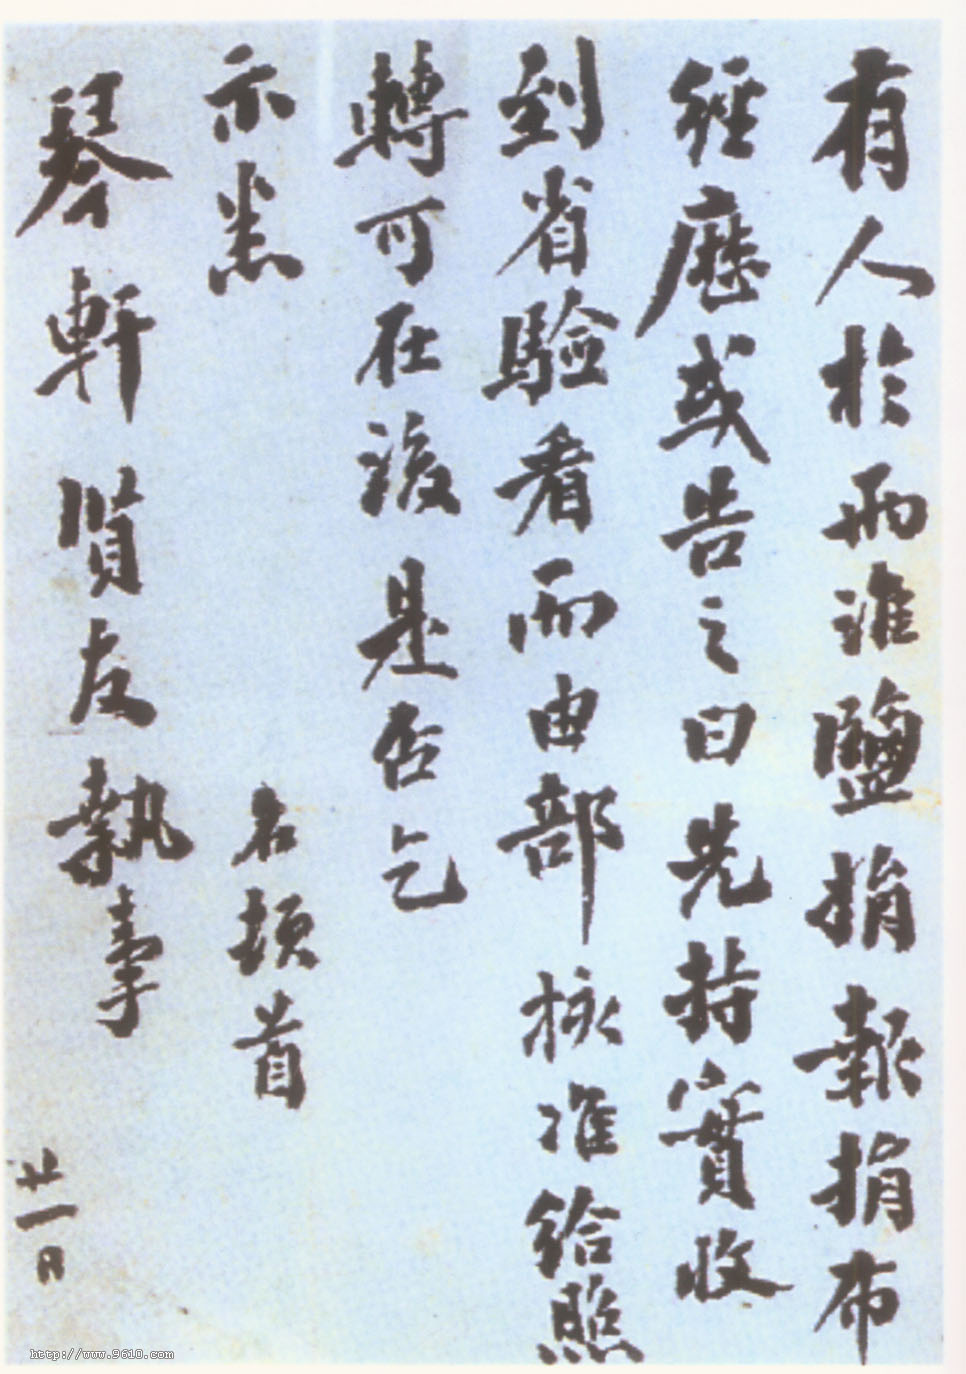 有人於兩淮鹽捐報捐布
經歷或告之曰先持實收
到省驗看而由部核准給照
轉可在後是否乞
示悉
名頓首
琴軒賢友執事
廿一日
http://www.9610.com